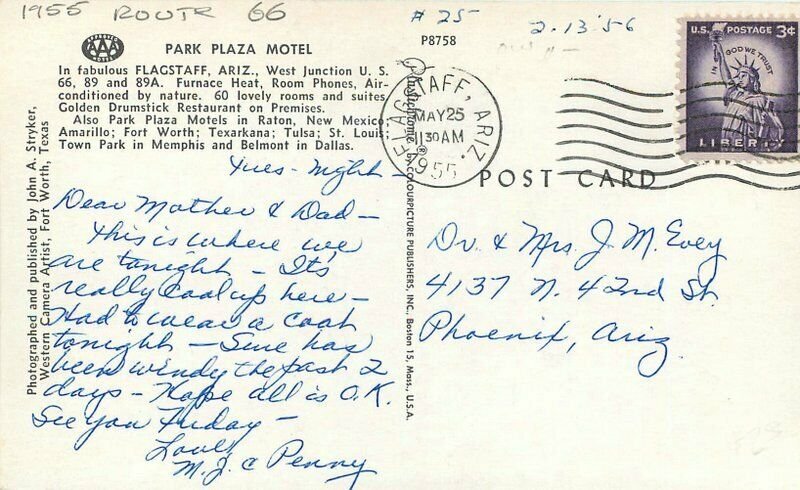 1955 ROUTE 66
# 25-
2.13'56
PARK PLAZA MOTEL
P8758
In fabulous FLAGSTAFF, ARIZ., West Junction U. S.
66, 89 and 89A. Furnace Heat, Room Phones, Air-
conditioned by nature. 60 lovely rooms and suites
Golden Drumstick Restaurant on Premises.
Also Park Plaza Motels in Raton, New Mexico;
Amarillo; Fort Worth; Texarkana; Tulsa; St. Louis;
Town Park in Memphis and Belmont in Dallas.
Photographed and published by John A. Stryker,
Western Camera Artist, Fort Worth, Texas
Plastichrome ® BY COLOURPICTURE PUBLISHERS, INC., Boston 15, Mass., U.S.A.
FLAGSTAFF, ARIZ.
MAY 25
1130 AM
1955
U.S. POSTAGE 3¢
IN GOD WE TRUST
LIBERTY
POST CARD
Tues- Night-
Dear Mother & Dad-
This is where we
are tonight - It's
really cool up here-
Had to wear a coat
tonight - Sure has
been windy the past 2
days - Hope all is O.K.
See you Friday-
Love,
M.J. & Penny
Dr. & Mrs. J. M. Evey
4137 N. 42nd St.
Phoenix, Ariz.